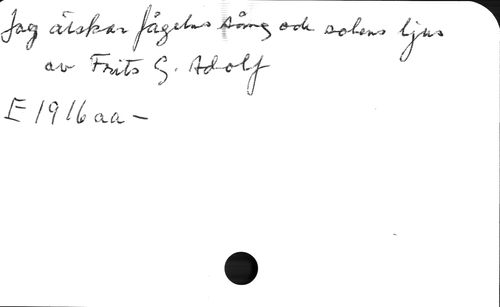 Jag älskar fågelns sång och solens ljus
av Frits G. Adolf
E 1916 aa -